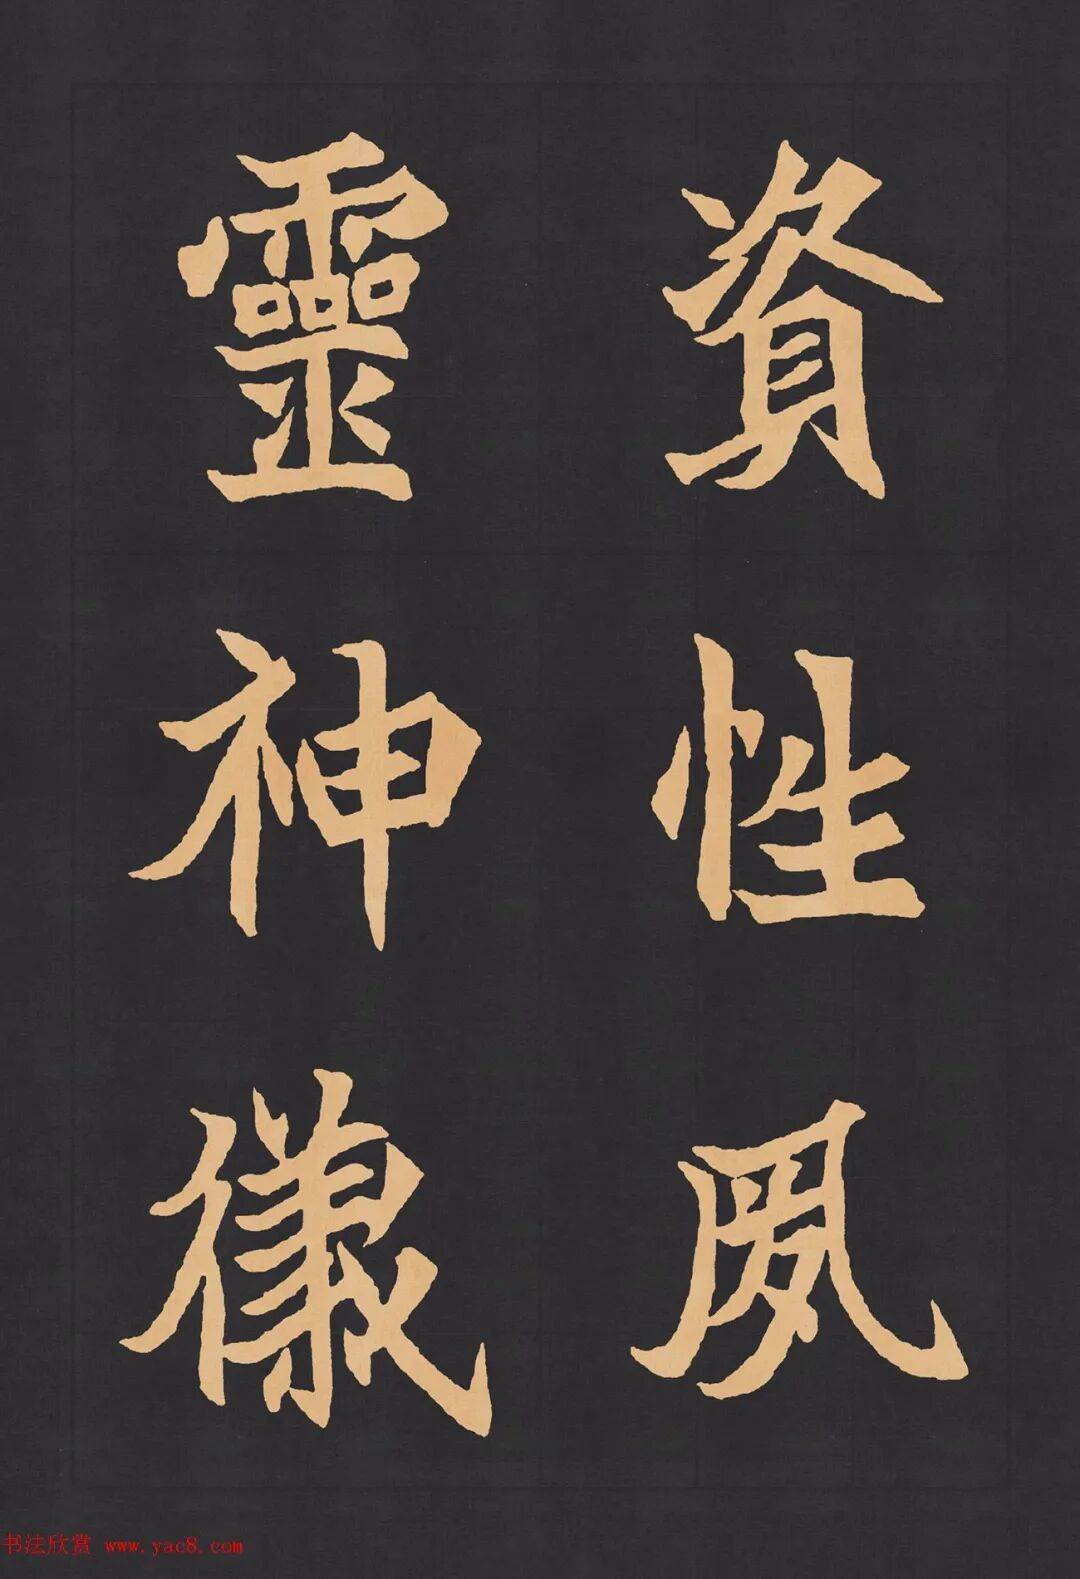 資性夙
靈神儀
书法欣赏 www.yac8.com